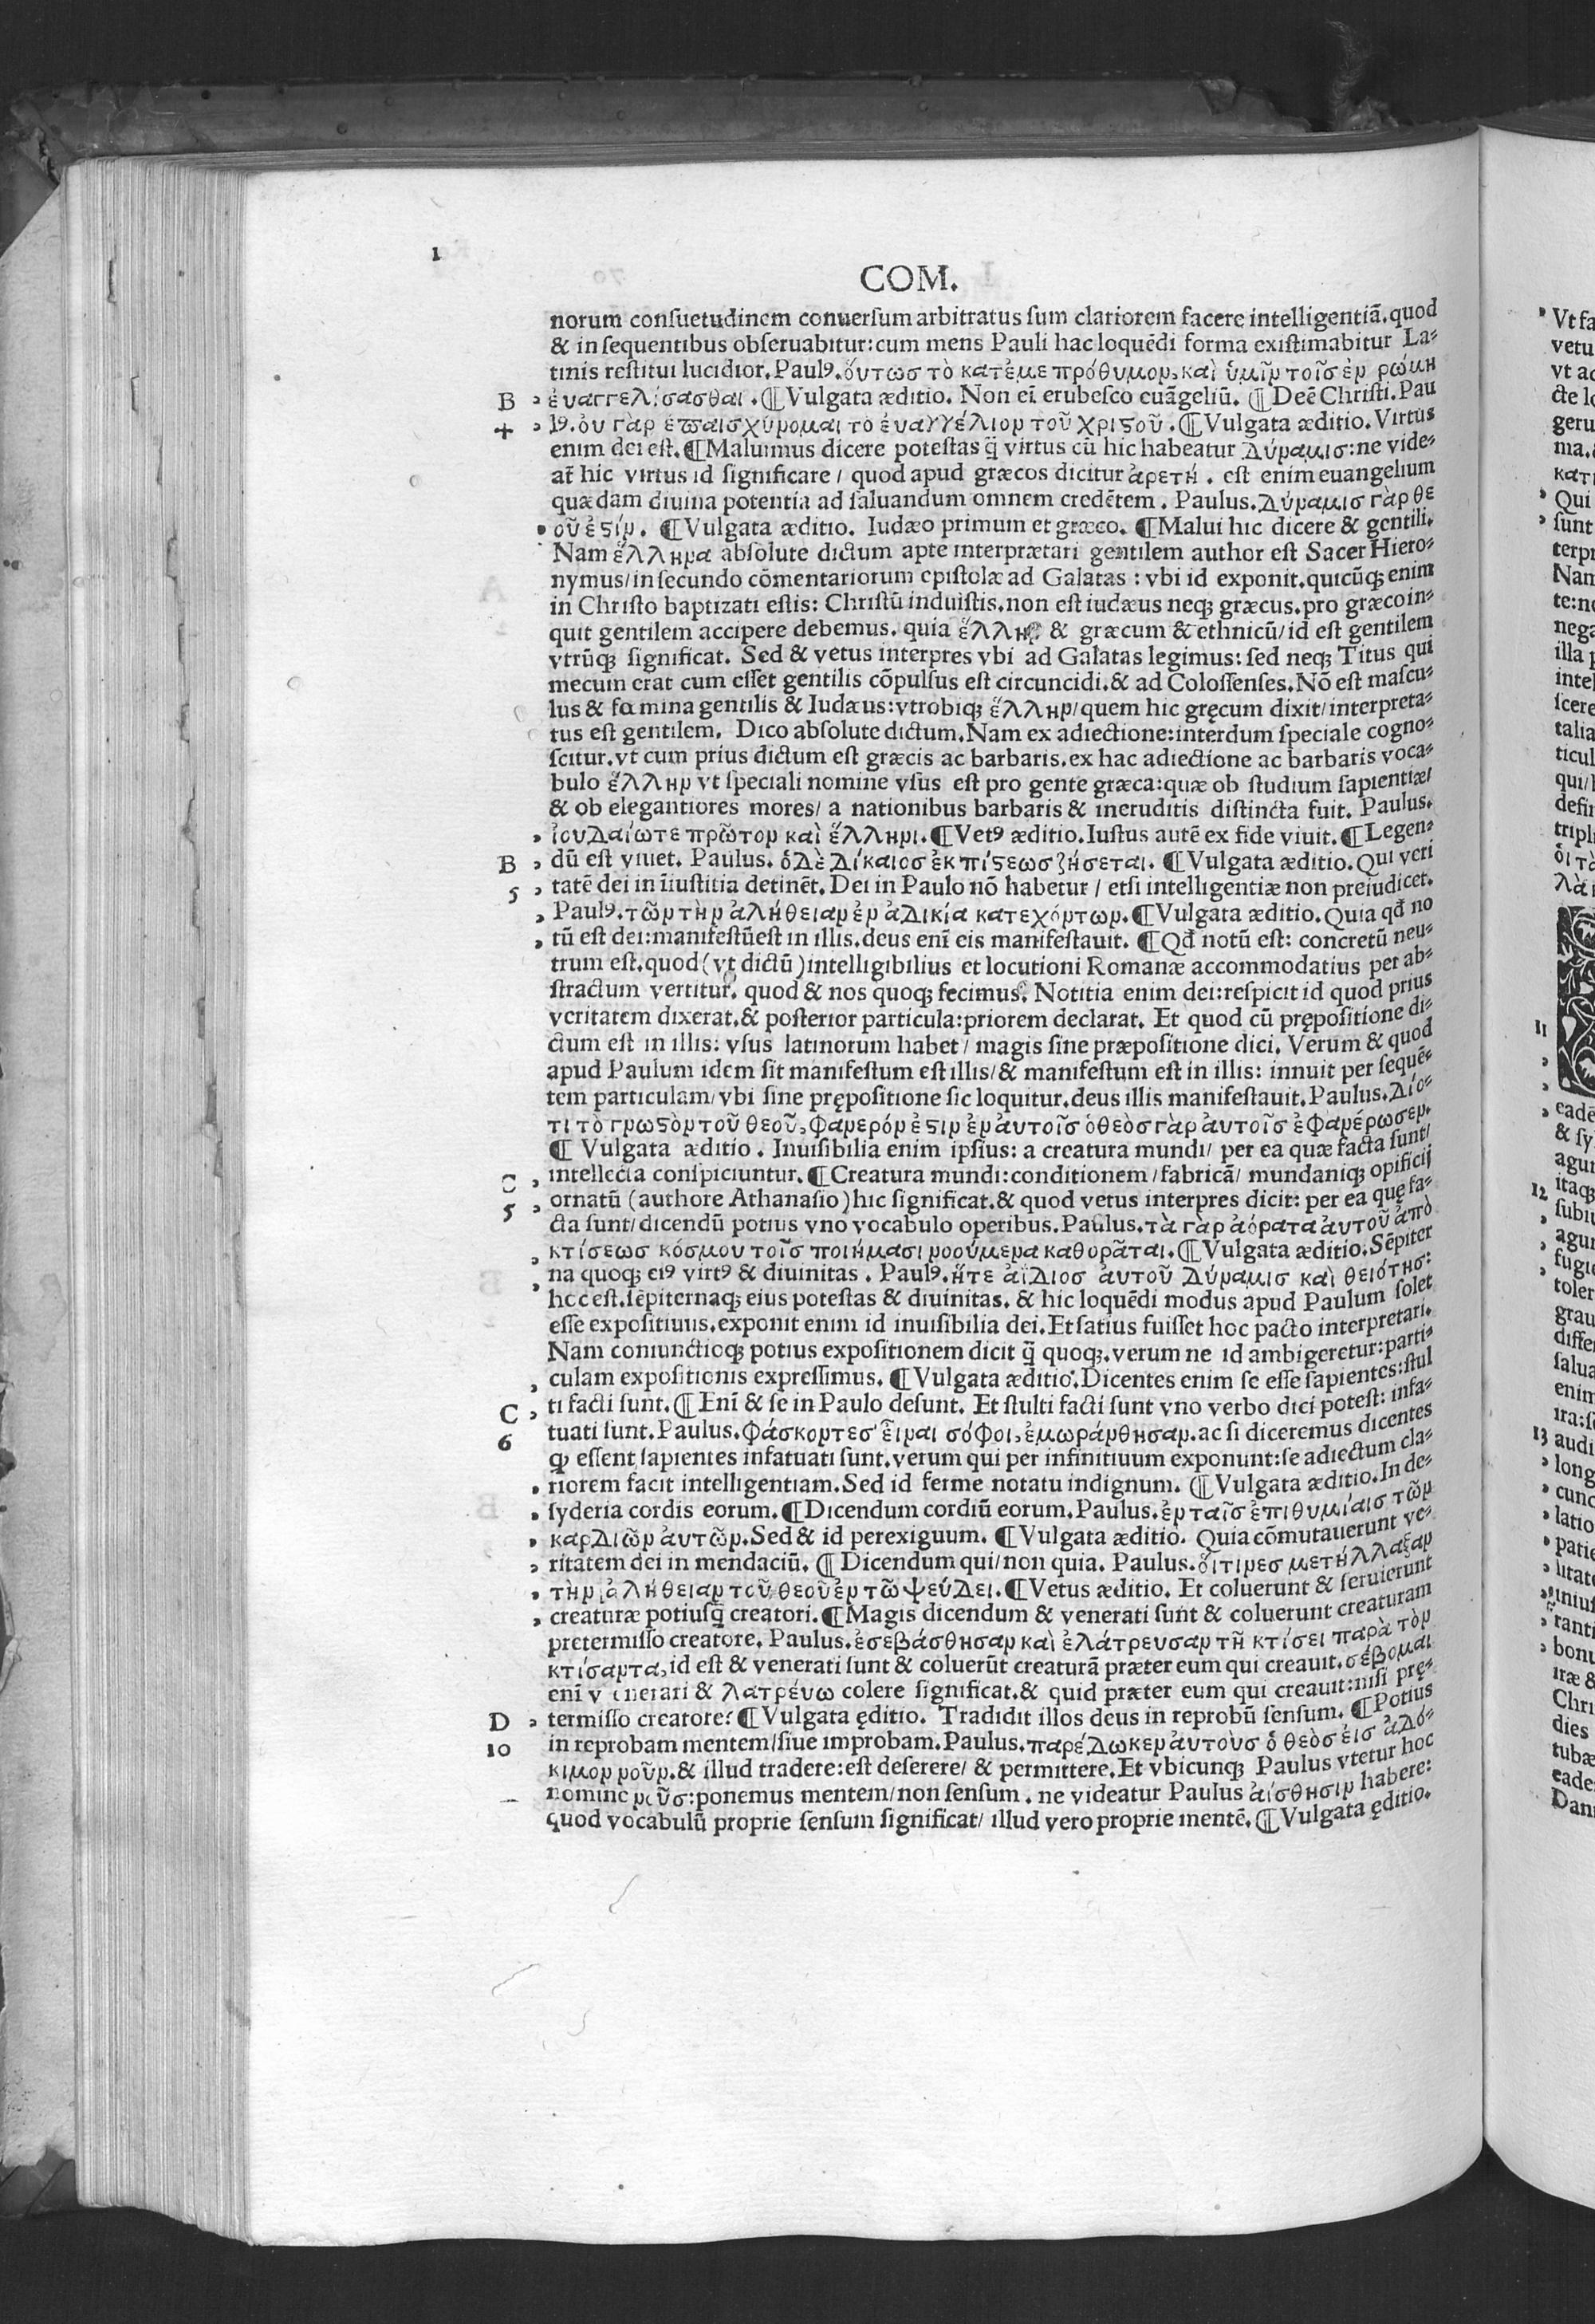 1
COM.
norum conſuetudinem conuerſum arbitratus ſum clariorem facere intelligentiã. quod
& in ſequentibus obſeruabitur: cum mens Pauli hac loquẽdi forma exiſtimabitur La-
tinis reſtitui lucidior. Paulꝰ. ὅυτωσ τὸ κατ'ἐμε πρόθυμον, καὶ ὑμῖν τοῖσ ἐν ρώμη
B , ἐυαγγελίσασθαι. ¶ Vulgata æditio. Non eĩ erubeſco euãgeliũ. ¶ Deẽ Chriſti. Pau
4 , lꝰ. ὀυ γὰρ ἐπαισχύνομαι τὸ ἐυαγγέλιον τοῦ χριϛοῦ. ¶ Vulgata æditio. Virtus
enim dei eſt. ¶ Maluimus dicere poteſtas q̃ virtus cũ hic habeatur δύναμισ: ne vide-
at̃ hic virtus id ſignificare / quod apud græcos dicitur ἀρετή. eſt enim euangelium
quædam diuina potentia ad ſaluandum omnem credẽtem. Paulus. δύναμισ γὰρ θε
οῦ ἐϛίν. ¶ Vulgata æditio. Iudæo primum et græco. ¶ Malui hic dicere & gentili.
Nam ἕλληνα abſolute dictum apte interprætari gentilem author eſt Sacer Hiero-
nymus / in ſecundo cõmentariorum epiſtolæ ad Galatas: vbi id exponit. quicũqꝫ enim
in Chriſto baptizati eſtis: Chriſtũ induiſtis. non eſt iudæus neqꝫ græcus. pro græco in-
quit gentilem accipere debemus. quia ἕλλην & græcum & ethnicũ / id eſt gentilem
vtrũqꝫ ſignificat. Sed & vetus interpres vbi ad Galatas legimus: ſed neqꝫ Titus qui
mecum erat cum eſſet gentilis cõpulſus eſt circuncidi. & ad Coloſſenſes. Nõ eſt maſcu-
lus & fœmina gentilis & Iudæus: vtrobiqꝫ ἕλλην / quem hic gręcum dixit / interpreta-
tus eſt gentilem. Dico abſolute dictum. Nam ex adiectione: interdum ſpeciale cogno-
ſcitur. vt cum prius dictum eſt græcis ac barbaris. ex hac adiectione ac barbaris voca-
bulo ἕλλην vt ſpeciali nomine vſus eſt pro gente græca: quæ ob ſtudium ſapientiæ /
& ob elegantiores mores / a nationibus barbaris & ineruditis diſtincta fuit. Paulus.
, ἰουδαίω τε πρῶτον καὶ ἕλληνι. ¶ Vetꝰ æditio. Iuſtus autẽ ex fide viuit. ¶ Legen-
B , dũ eſt viuet. Paulus. ὁ δὲ δίκαιοσ ἐκ πίϛεωσ ζήσεται. ¶ Vulgata æditio. Qui veri
5 , tatẽ dei in ĩiuſtitia detinẽt. Dei in Paulo nõ habetur / etſi intelligentiæ non preiudicet.
, Paulꝰ. τῶν τὴν ἀλήθειαν ἐν ἀδικία κατεχόντων. ¶ Vulgata æditio. Quia qđ no
, tũ eſt dei: manifeſtũ eſt in illis. deus enĩ eis manifeſtauit. ¶ Qđ notũ eſt: concretũ neu-
trum eſt. quod (vt dictũ) intelligibilius et locutioni Romanæ accommodatius per ab-
ſtractum vertitur. quod & nos quoqꝫ fecimus. Notitia enim dei: reſpicit id quod prius
veritatem dixerat. & poſterior particula: priorem declarat. Et quod cũ prępoſitione di-
ctum eſt in illis: vſus latinorum habet / magis ſine præpoſitione dici. Verum & quod
apud Paulum idem ſit manifeſtum eſt illis / & manifeſtum eſt in illis: innuit per ſequẽ-
tem particulam / vbi ſine prępoſitione ſic loquitur. deus illis manifeſtauit. Paulus. διό-
τι τὸ γνωϛὸν τοῦ θεοῦ, φανερόν ἐϛιν ἐν ἀυτοῖσ ὁ θεὸσ γὰρ ἀυτοῖσ ἐφανέρωσεν.
¶ Vulgata æditio. Inuiſibilia enim ipſius: a creatura mundi / per ea quæ facta ſunt /
C , intellecta conſpiciuntur. ¶ Creatura mundi: conditionem / fabricã / mundaniqꝫ opificij
5 , ornatũ (authore Athanaſio) hic ſignificat. & quod vetus interpres dicit: per ea quę fa-
cta ſunt / dicendũ potius vno vocabulo operibus. Paulus. τὰ γὰρ ἀόρατα ἀυτοῦ ἀπὸ
, κτίσεωσ κόσμου τοῖσ ποιήμασι νοούμενα καθορᾶται. ¶ Vulgata æditio. Sẽpiter
, na quoqꝫ eiꝰ virtꝰ & diuinitas. Paulꝰ. ἥτε ἀΐδιοσ ἀυτοῦ δύναμισ καὶ θειότησ:
hoc eſt. ſẽpiternaqꝫ eius poteſtas & diuinitas. & hic loquẽdi modus apud Paulum ſolet
eſſe expoſitiuus. exponit enim id inuiſibilia dei. Et ſatius fuiſſet hoc pacto interpretari.
Nam coniunctioqꝫ potius expoſitionem dicit q̃ quoqꝫ. verum ne id ambigeretur: parti-
, culam expoſitionis expreſſimus. ¶ Vulgata æditio. Dicentes enim ſe eſſe ſapientes: ſtul
C , ti facti ſunt. ¶ Enĩ & ſe in Paulo deſunt. Et ſtulti facti ſunt vno verbo dici poteſt: infa-
6 tuati ſunt. Paulus. φάσκοντεσ ἐῖναι σόφοι, ἐμωράνθησαν. ac ſi diceremus dicentes
ꝙ eſſent ſapientes infatuati ſunt. verum qui per infinitiuum exponunt: ſe adiectum cla-
, riorem facit intelligentiam. Sed id ferme notatu indignum. ¶ Vulgata æditio. In de-
, ſyderia cordis eorum. ¶ Dicendum cordiũ eorum. Paulus. ἐν ταῖσ ἐπιθυμίαισ τῶν
, καρδιῶν ἀυτῶν. Sed & id perexiguum. ¶ Vulgata æditio. Quia cõmutauerunt ve-
, ritatem dei in mendaciũ. ¶ Dicendum qui / non quia. Paulus. ὅιτινεσ μετήλλαξαν
, τὴν ἀλήθειαν τοῦ θεοῦ ἐν τῶ ψεύδει. ¶ Vetus æditio. Et coluerunt & ſeruierunt
, creaturæ potiuſq̃ creatori. ¶ Magis dicendum & venerati ſunt & coluerunt creaturam
pretermiſſo creatore. Paulus. ἐσεβάσθησαν καὶ ἐλάτρευσαν τῆ κτίσει παρὰ τὸν
κτίσαντα, id eſt & venerati ſunt & coluerũt creaturã præter eum qui creauit. σέβομαι
enĩ venerari & λατρέυω colere ſignificat. & quid præter eum qui creauit: niſi prę-
D , termiſſo creatore? ¶ Vulgata ęditio. Tradidit illos deus in reprobũ ſenſum. ¶ Potius
10 in reprobam mentem / ſiue improbam. Paulus. παρέδωκεν ἀυτοὺσ ὁ θεὸσ ἐισ ἀδό-
κιμον νοῦν. & illud tradere: eſt deſerere / & permittere. Et vbicunqꝫ Paulus vtetur hoc
nomine νοῦσ: ponemus mentem / non ſenſum. ne videatur Paulus ἀίσθησιν habere:
quod vocabulũ proprie ſenſum ſignificat / illud vero proprie mentẽ. ¶ Vulgata ęditio.